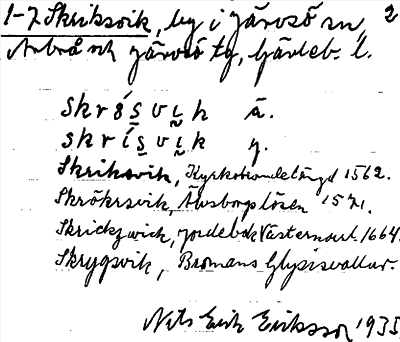 1-7 Skriksvik, by i Järvsö sn, 2
Arbrå och Järvsö tg, Gävleb. l.
skrö́s̱vi̱k ä.
skrí̱s̱vi̱k y.
Skriksvik, Kyrkotiondelängd 1562.
Skrökrsvik, Älvsborgs lösen 1571.
Skrickzwich, Jordebok Västernorrl. 1664.
Skrygsvik, Bromans Glysisvallur.
Nils Erik Eriksson 1935